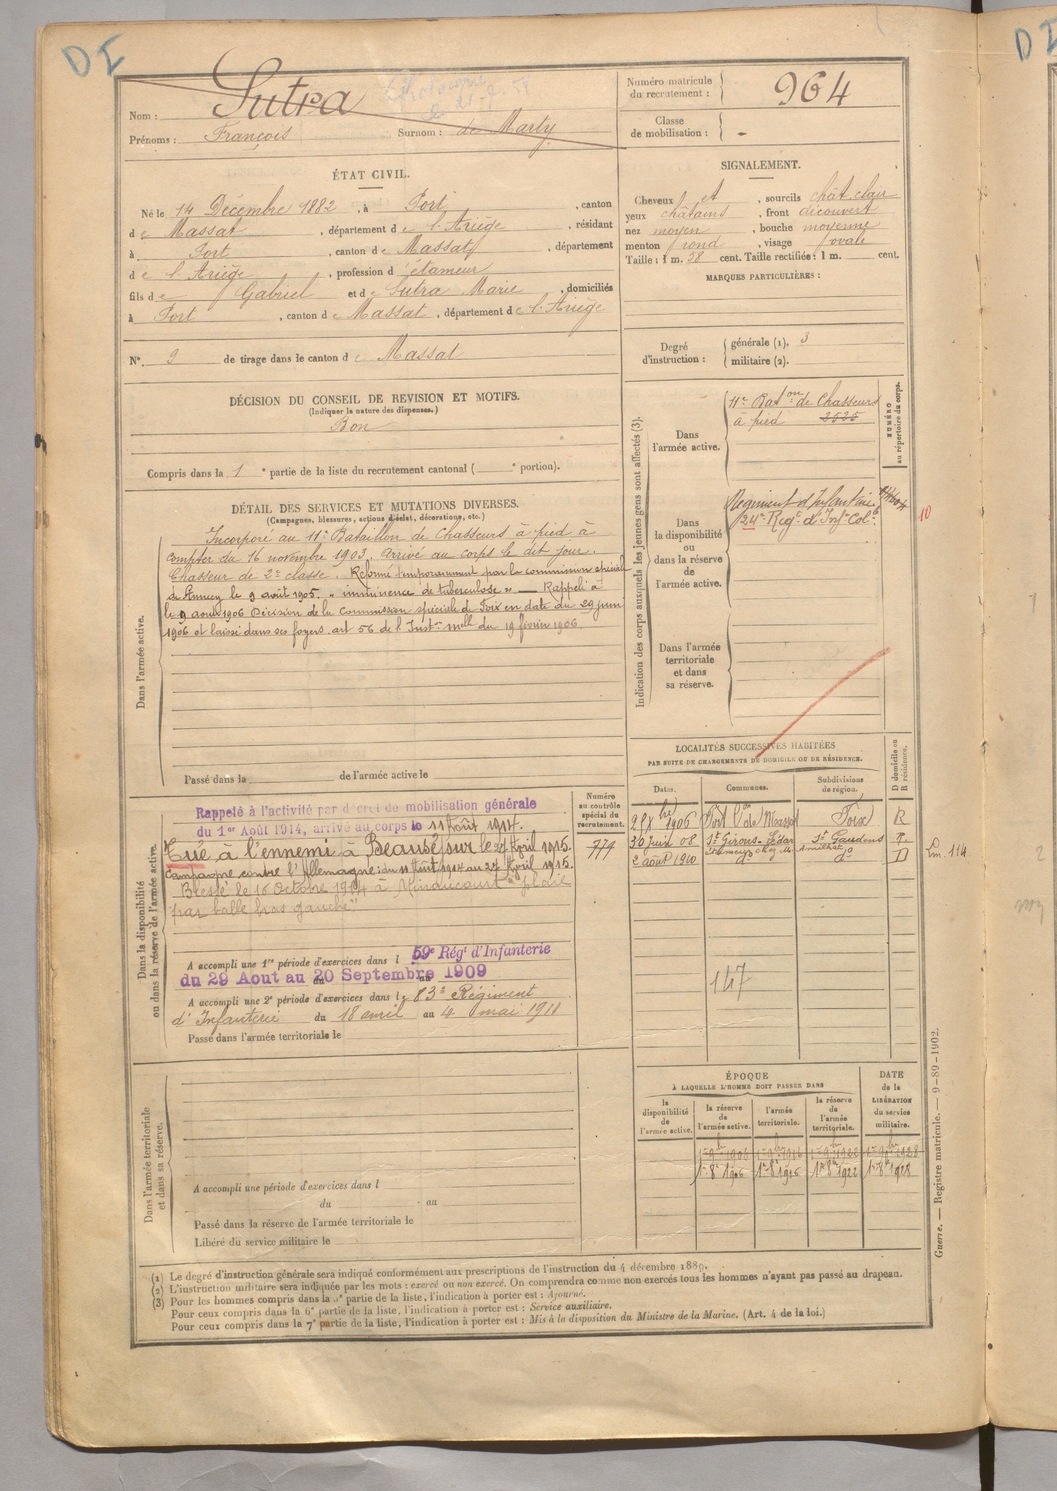 DI
Nom : Sutra
Prénoms : François Surnom : de Marty
Numéro matricule du recrutement : 964
Classe de mobilisation : -
ÉTAT CIVIL.
Né le 14 Décembre 1882, à Port, canton
de Massat, département de l'Ariège, résidant
à Port, canton de Massat, département
de l'Ariège, profession d'étameur
fils de Gabriel et de Sutra Marie, domiciliés
à Port, canton de Massat, département de l'Ariège
N° 9 de tirage dans le canton de Massat
SIGNALEMENT.
Cheveux et, sourcils chât. clair
yeux châtains, front découvert
nez moyen, bouche moyenne
menton rond, visage ovale
Taille : 1 m. 58 cent. Taille rectifiée : 1 m. cent.
MARQUES PARTICULIÈRES :
Degré d'instruction : générale (1). 3
militaire (2).
DÉCISION DU CONSEIL DE REVISION ET MOTIFS.
(Indiquer la nature des dispenses.)
Bon
Compris dans la 1e partie de la liste du recrutement cantonal ( e portion).
DÉTAIL DES SERVICES ET MUTATIONS DIVERSES.
(Campagnes, blessures, actions d'éclat, décorations, etc.)
Dans l'armée active.
Incorporé au 11e Bataillon de Chasseurs à pied à
compter du 16 novembre 1903. Arrivé au corps le dit jour.
Chasseur de 2e classe. Réformé temporairement par la commission spéciale
de Annecy le 9 août 1905. « imminence de tuberculose ». — Rappelé à
le 9 août 1906 Décision de la Commission spéciale de Foix en date du 29 juin
1906 et laissé dans ses foyers art 56 de l'Inston mlle du 19 février 1906
Passé dans la de l'armée active le
Indication des corps auxquels les jeunes gens sont affectés (3).
NUMÉRO au répertoire du corps.
Dans l'armée active.
11e Baton de Chasseurs
à pied 3525
Dans la disponibilité ou dans la réserve de l'armée active.
Régiment d'Infanterie
24e Régt d'Infie Colle
10
Dans l'armée territoriale et dans sa réserve.
LOCALITÉS SUCCESSIVES HABITÉES
PAR SUITE DE CHANGEMENTS DE DOMICILE OU DE RÉSIDENCE.
Dates. Communes. Subdivisions de région. D domicile ou R résidence.
9 8bre 1906 Port Con de Massat Foix R
30 juin 08 St Girons St Gaudens
2 août 1910 do do D
147
Dans la disponibilité ou dans la réserve de l'armée active.
Numéro au contrôle spécial du recrutement.
Rappelé à l'activité par décret de mobilisation générale
du 1er Août 1914, arrivé au corps le 11 Août 1914.
Tué à l'ennemi à Beauséjour le 27 Avril 1915.
Campagne contre l'Allemagne : du 11 Août 1914 au 27 Avril 1915.
Blessé le 16 Octobre 1914 à Minaucourt "plaie
par balle bras gauche".
A accompli une 1re période d'exercices dans l 59e Régt d'Infanterie
du 29 Aout au 20 Septembre 1909
A accompli une 2e période d'exercices dans le 83e Régiment
d'Infanterie du 18 avril au 4 mai 1911
Passé dans l'armée territoriale le
Dans l'armée territoriale et dans sa réserve.
A accompli une période d'exercices dans l
du au
Passé dans la réserve de l'armée territoriale le
Libéré du service militaire le
ÉPOQUE
À LAQUELLE L'HOMME DOIT PASSER DANS
DATE de la LIBÉRATION du service militaire.
la disponibilité de l'armée active. la réserve de l'armée active. l'armée territoriale. la réserve de l'armée territoriale.
1er 8bre 1906 1er 8bre 1916 1er 8bre 1922 1er 8bre 1928
(1) Le degré d'instruction générale sera indiqué conformément aux prescriptions de l'instruction du 4 décembre 1889.
(2) L'instruction militaire sera indiquée par les mots : exercé ou non exercé. On comprendra comme non exercés tous les hommes n'ayant pas passé au drapeau.
(3) Pour les hommes compris dans la 5e partie de la liste, l'indication à porter est : Ajourné.
Pour ceux compris dans la 6e partie de la liste, l'indication à porter est : Service auxiliaire.
Pour ceux compris dans la 7e partie de la liste, l'indication à porter est : Mis à la disposition du Ministre de la Marine. (Art. 4 de la loi.)
Guerre. — Registre matricule. — 9-89-1902.